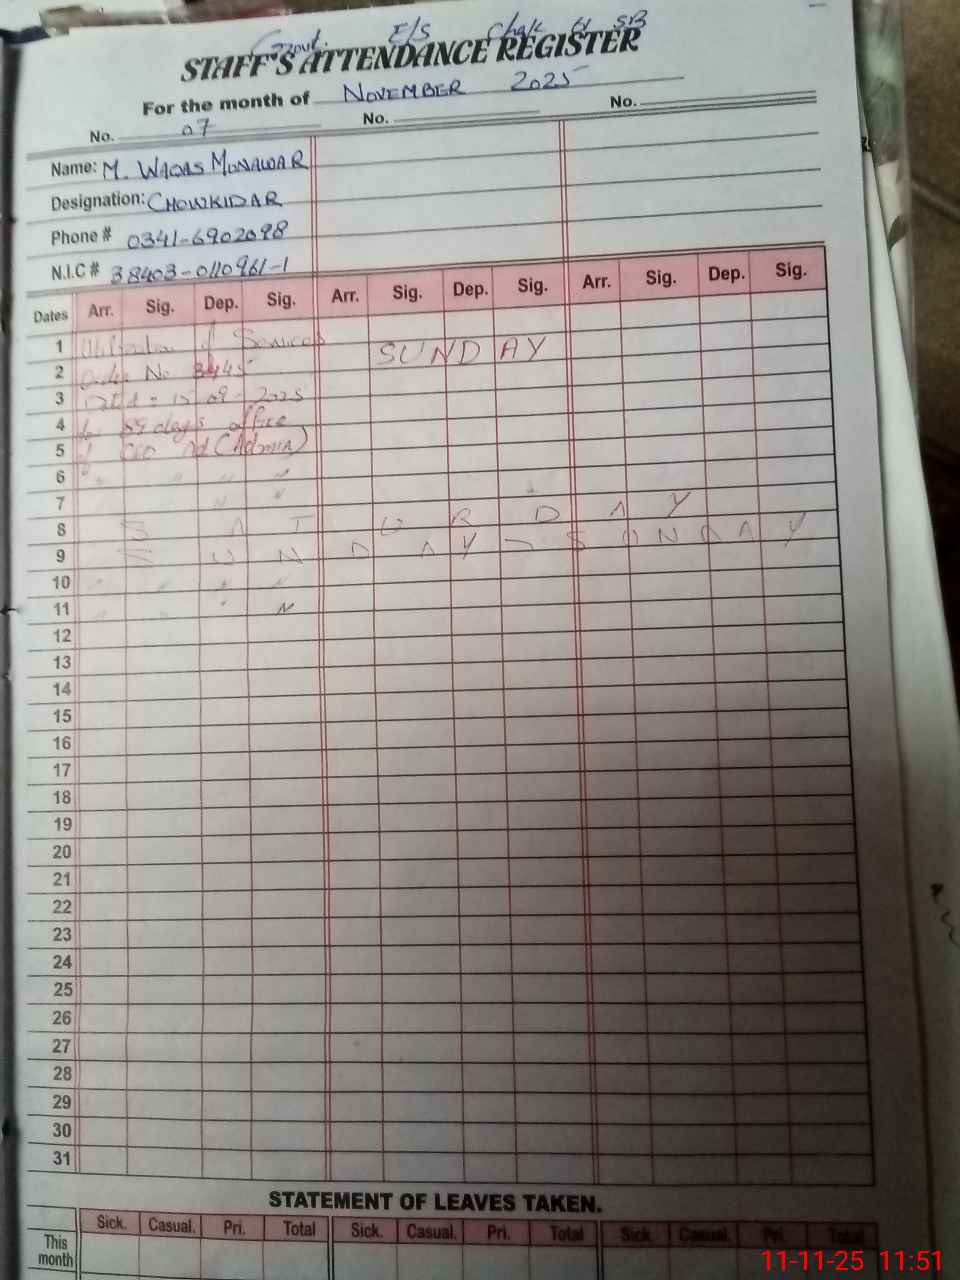 Govt. E/S Chak 61 SB
STAFF'S ATTENDANCE REGISTER
For the month of NOVEMBER 2025
No. 07 No. No.
Name: M. WAQAS MUNAWAR
Designation: CHOWKIDAR
Phone # 0341-6902098
N.I.C # 38403-0110961-1
Dates Arr. Sig. Dep. Sig. Arr. Sig. Dep. Sig. Arr. Sig. Dep. Sig.
1 of Services SUNDAY
2 Order No
3 2025
4 89 days office
5 of CEO (Admin)
6 " " "
7 "
8 SATURDAY
9 SUNDAY SUNDAY
10 " " " "
11 " "
12
13
14
15
16
17
18
19
20
21
22
23
24
25
26
27
28
29
30
31
STATEMENT OF LEAVES TAKEN.
Sick. Casual. Pri. Total Sick. Casual. Pri. Total Sick. Casual. Pri. Total
This
month
11-11-25 11:51